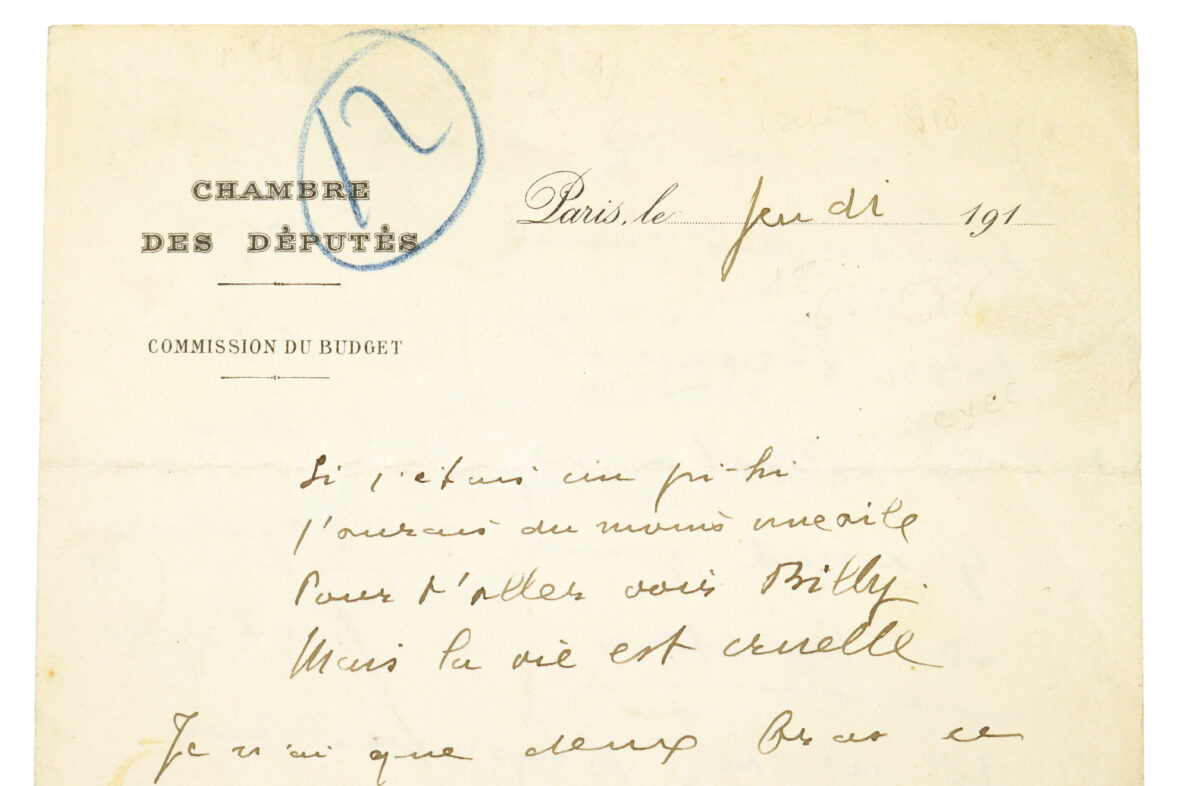 12
CHAMBRE
DES DÉPUTÉS
Paris, le jeudi 191
COMMISSION DU BUDGET
Si j'étais un pi-hi
J'aurais du moins une aile
Pour t'aller voir Billy.
Mais la vie est cruelle
Je n'ai que deux bras ce